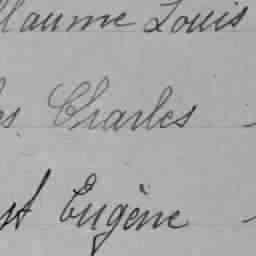 llaume Louis
es Charles -
st Eugène -